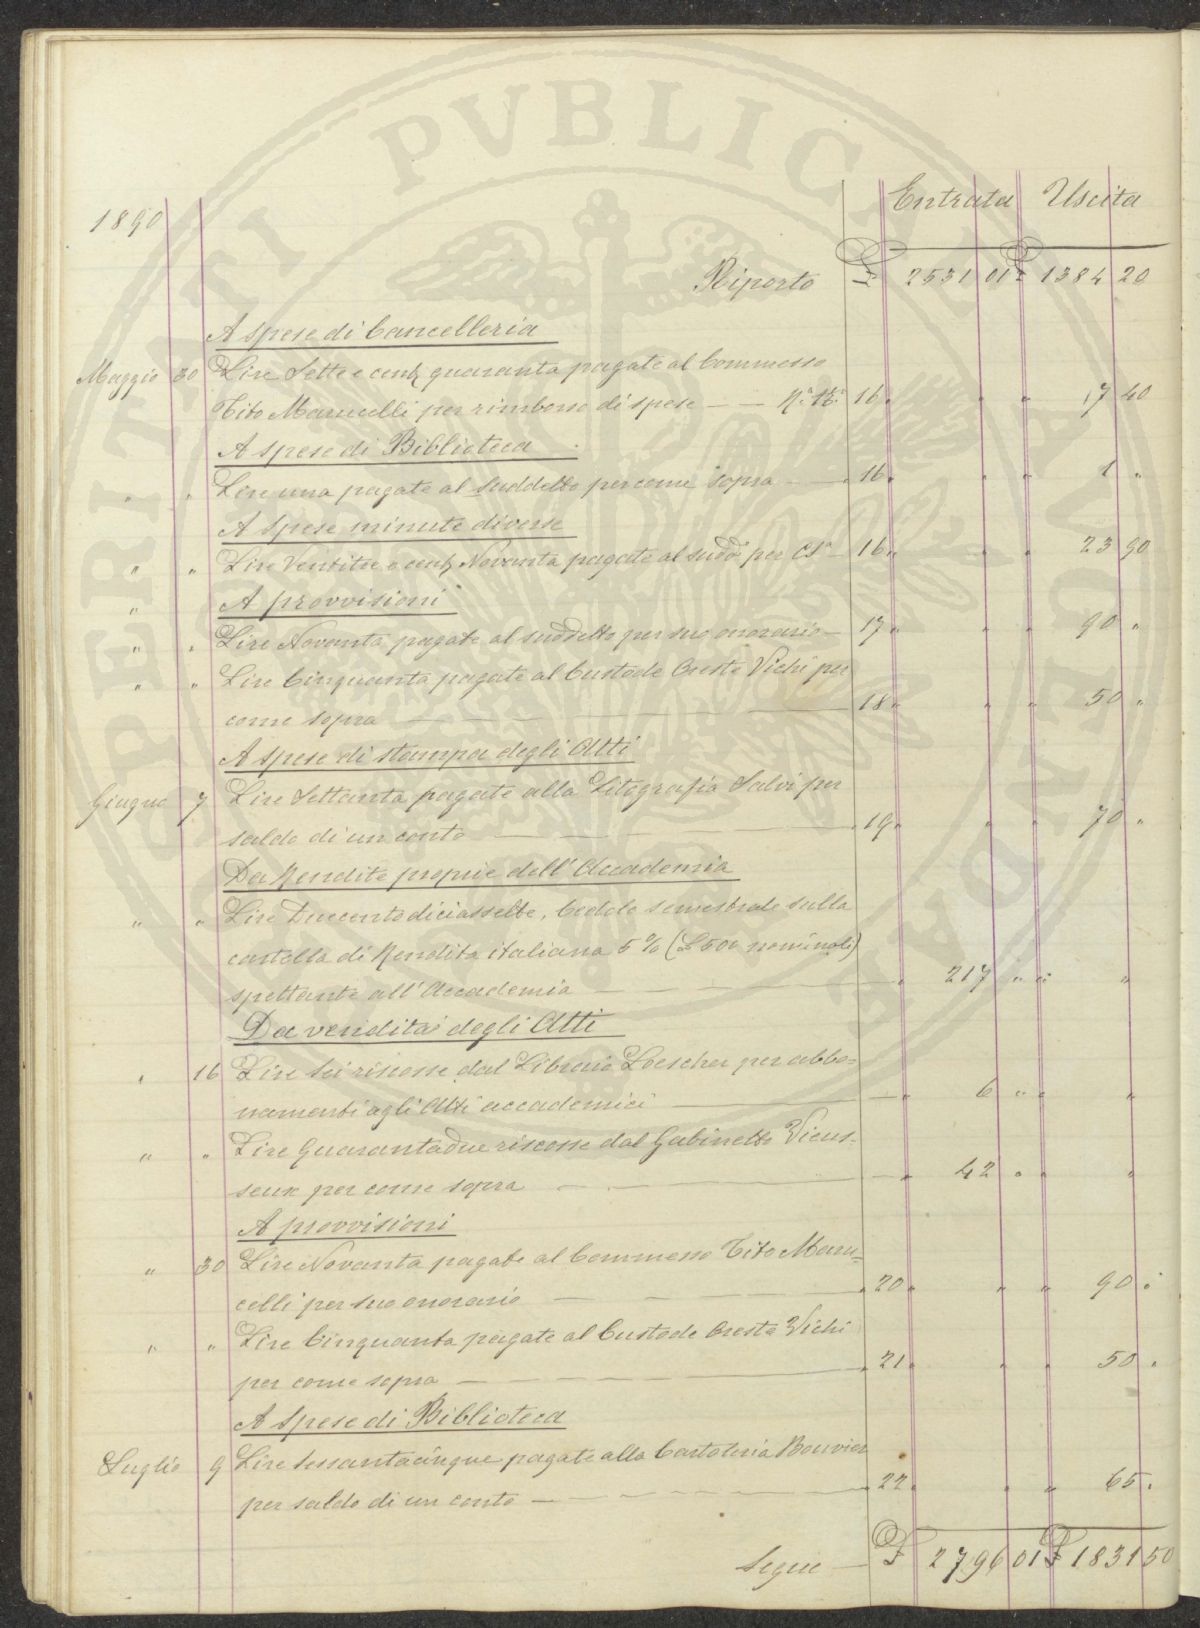 PERITATI PVBLICAE AVGENDAE
1890 Entrata Uscita
Riporto £ 2531 01 £ 1384 20
A spese di Cancelleria
Maggio 30 Lire Sette e cent quaranta pagate al Commesso
Tito Marucelli per rimborso di spese — — 16 " " 7 40
A spese di Biblioteca
" " Lire una pagate al suddetto per come sopra — — 16 " " 1 "
A spese minute diverse
" " Lire Ventitre e cent Novanta pagate al sudd° per Cs — 16 " " 23 90
" A provvisioni
" " Lire Novanta pagate al suddetto per suo onorario — 17 " " 90 "
" " Lire Cinquanta pagate al Custode Oreste Vichi per
come sopra — — — 18 " " 50 "
A spese di stampa degli Atti
Giugno 7 Lire Settanta pagate alla Litografia Salvi per
saldo di un conto — — — 19 " " 70 "
Da Rendite proprie dell'Accademia
" " Lire Duecentodiciassette, Cedole semestrale sulla
cartella di Rendita italiana 5 % (L 500 nominali)
spettante all'Accademia — — — " 217 " " "
Da vendita degli Atti
" 16 Lire Sei riscosse dal Libraio Loescher per abbo=
namenti agli Atti accademici — — " 6 " " "
" " Lire Quarantadue riscosse dal Gabinetto Vieus=
seux per come sopra — — — " 42 " " "
A provvisioni
" 30 Lire Novanta pagate al Commesso Tito Maru=
celli per suo onorario — — — 20 " " 90 "
" " Lire Cinquanta pagate al Custode Oreste Vichi
per come sopra — — — 21 " " 50 "
A spese di Biblioteca
Luglio 9 Lire sessantacinque pagate alla Cartoleria Bouvier
per saldo di un conto — — — 22 " " 65 "
Segue — £ 2796 01 £ 1831 50